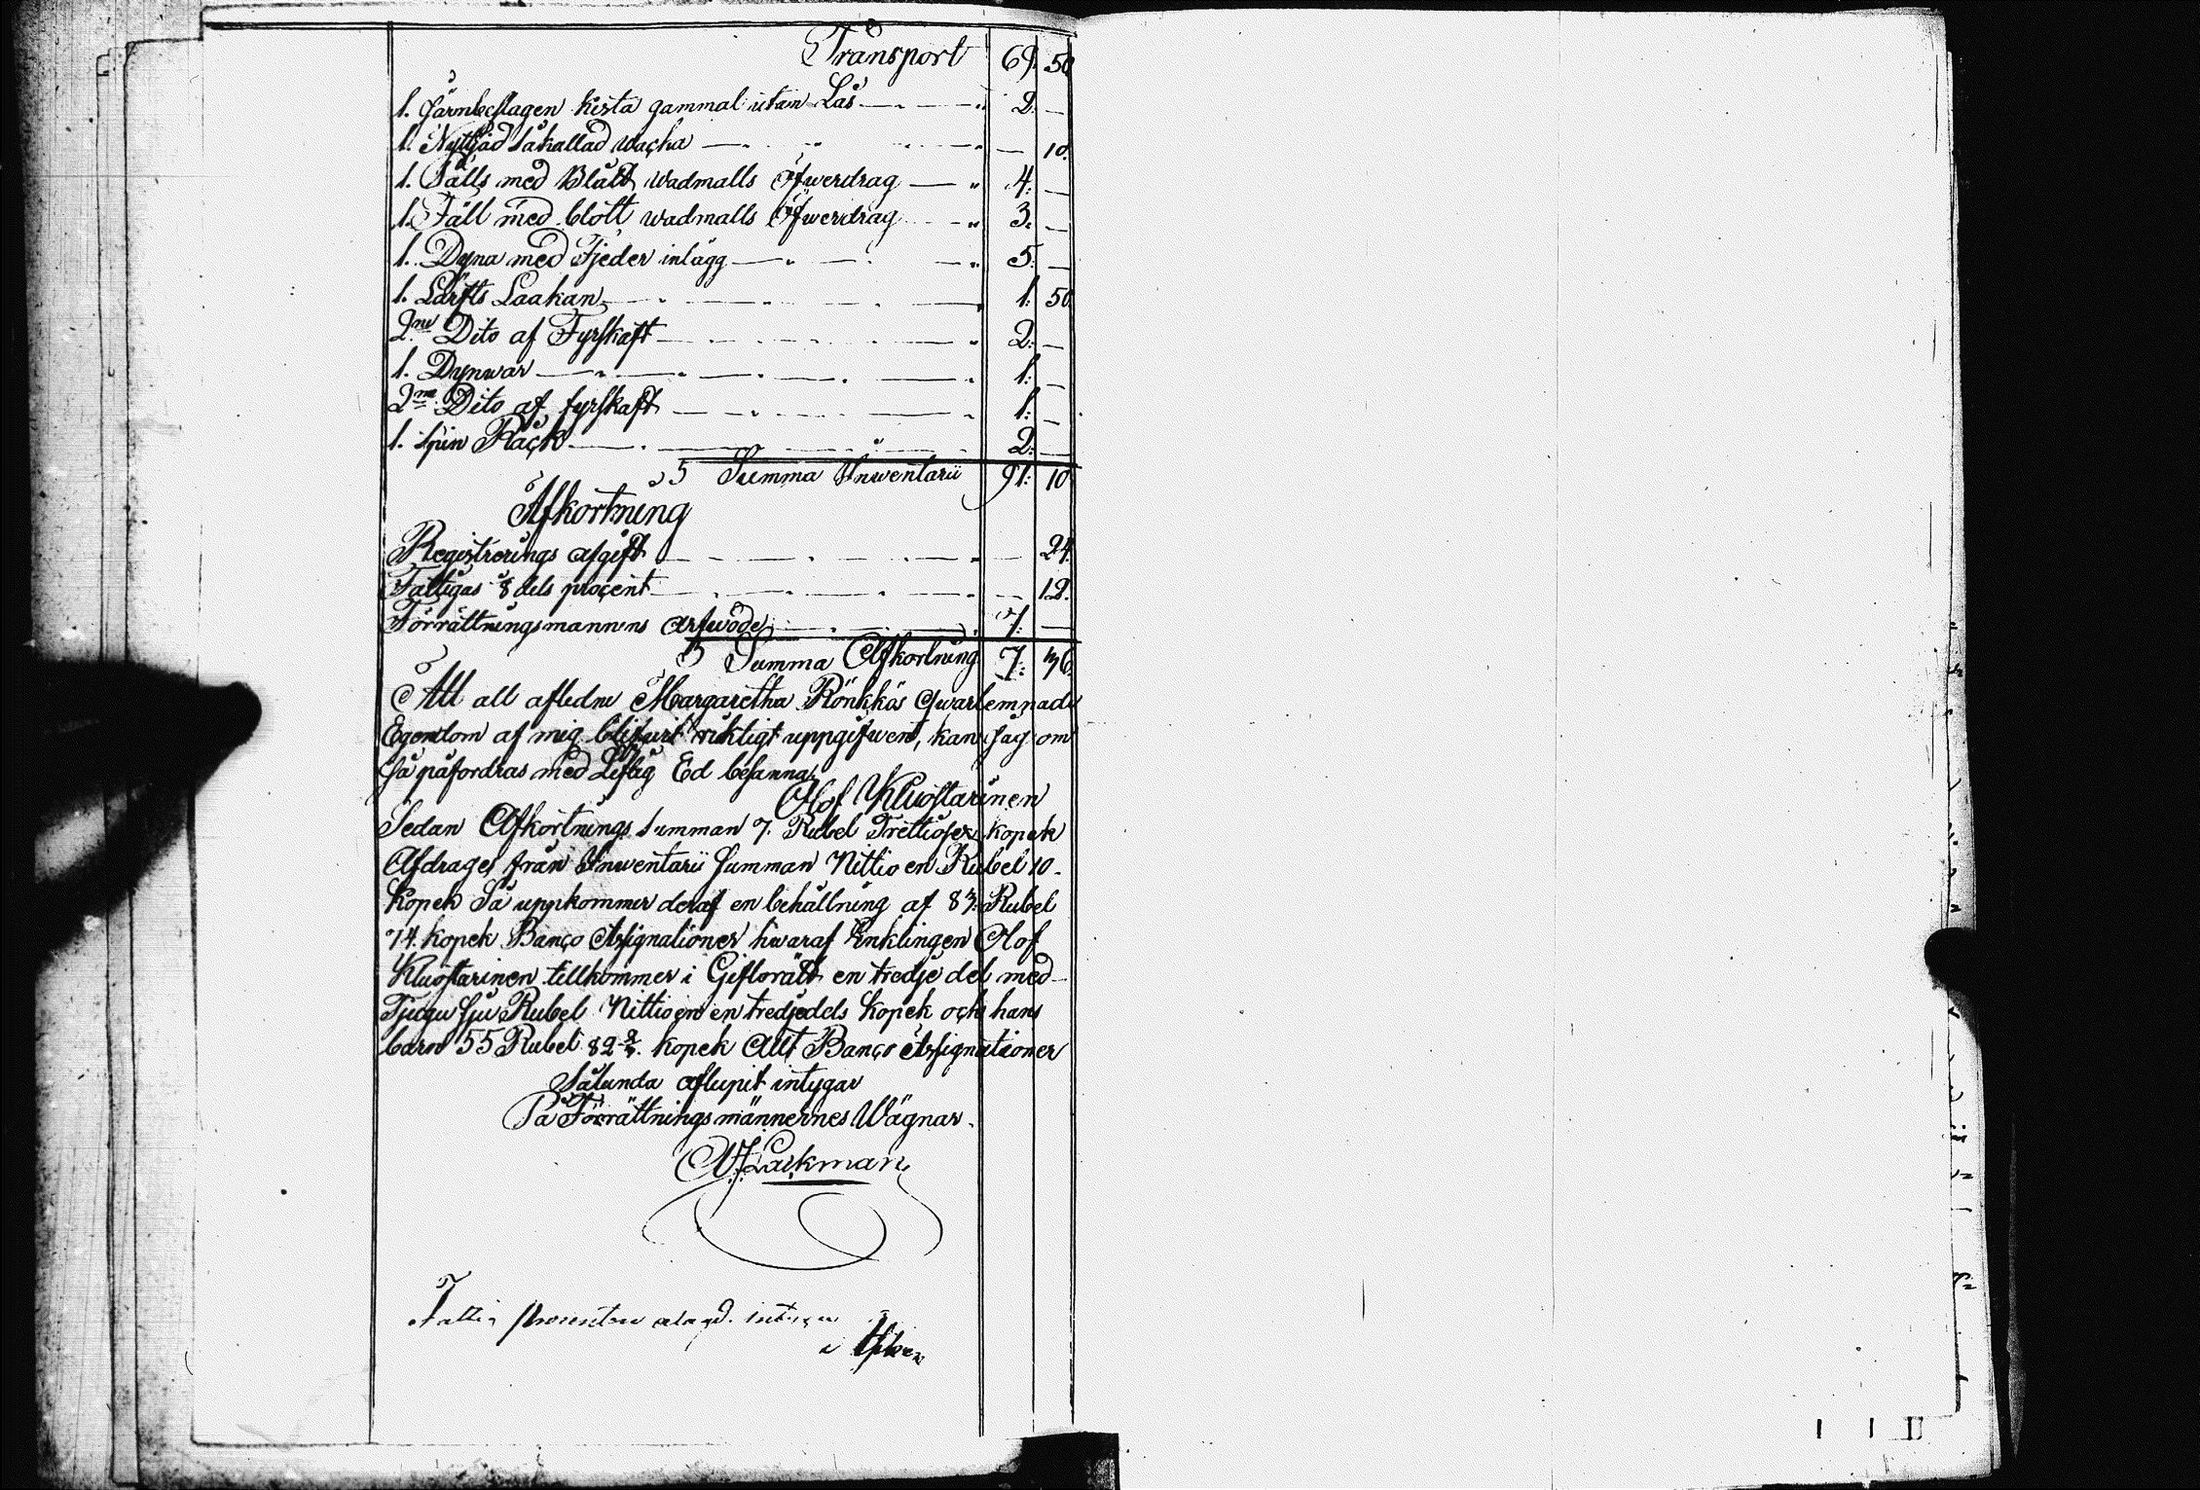 Transport 69. 50.
1. Järnbeslagen kista gammal utan Lås 2. —
1. Nyttjad såkallad wacka — 10.
1. Fälls med Blått wadmalls Öfwerdrag 4. —
1. Fäll med blött wadmalls Öfwerdrag 3. —
1. Dyna med Fjeder inlägg 5. —
1. Lärfts Laakan 1. 50.
2ne Dito af Fyrskaft 2. —
1. Dynwar 1: —
2ne Dito af fyrskaft 1: —
1. spin Råck 2. —
Summa Inwentarii 91: 10
Afkortning
Registrerings afgift — 24.
Fattigas 8 dels procent — 12.
Förrättningsmannens arfwode 7: —
Summa Afkortning 7: 36.
Att all afledne Margaretha Rönkkös qwarlemnade
Egendom af mig blifwit riktigt uppgifwen, kan jag om
så påfordras med Liflig Ed besanna,
Olof Kluostarinen
Sedan Afkortnings summan 7. Rubel Trettiosex kopek
Afdrages från Inwentarii summan Nittio en Rubel 10.
kopek Så uppkommer deraf en behållning af 83. Rubel
74. kopek Banco Assignationer hwaraf Enklingen Olof
Kluostarinen tillkommer i Giftorätt en tredje del med
Tjugu sju Rubel Nittioen en tredjedels kopek och hans
barn 55 Rubel 82 2/3. kopek Allt Banco Assignationer
Sålunda aflupit intygar
På Förrättningsmännernes Wägnar.
Lackman